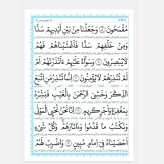 مُّقْمَحُونَ ۝ وَجَعَلْنَا مِنۢ بَيْنِ أَيْدِيهِمْ سَدًّا
وَمِنْ خَلْفِهِمْ سَدًّا فَأَغْشَيْنَٰهُمْ فَهُمْ
لَا يُبْصِرُونَ ۝ وَسَوَآءٌ عَلَيْهِمْ ءَأَنذَرْتَهُمْ أَمْ
لَمْ تُنذِرْهُمْ لَا يُؤْمِنُونَ ۝ إِنَّمَا تُنذِرُ مَنِ ٱتَّبَعَ
ٱلذِّكْرَ وَخَشِىَ ٱلرَّحْمَٰنَ بِٱلْغَيْبِ فَبَشِّرْهُ
بِمَغْفِرَةٍ وَأَجْرٍ كَرِيمٍ ۝ إِنَّا نَحْنُ نُحْىِ ٱلْمَوْتَىٰ
وَنَكْتُبُ مَا قَدَّمُوا۟ وَءَاثَٰرَهُمْ وَكُلَّ شَىْءٍ
أَحْصَيْنَٰهُ فِىٓ إِمَامٍ مُّبِينٍ ۝ وَٱضْرِبْ لَهُم